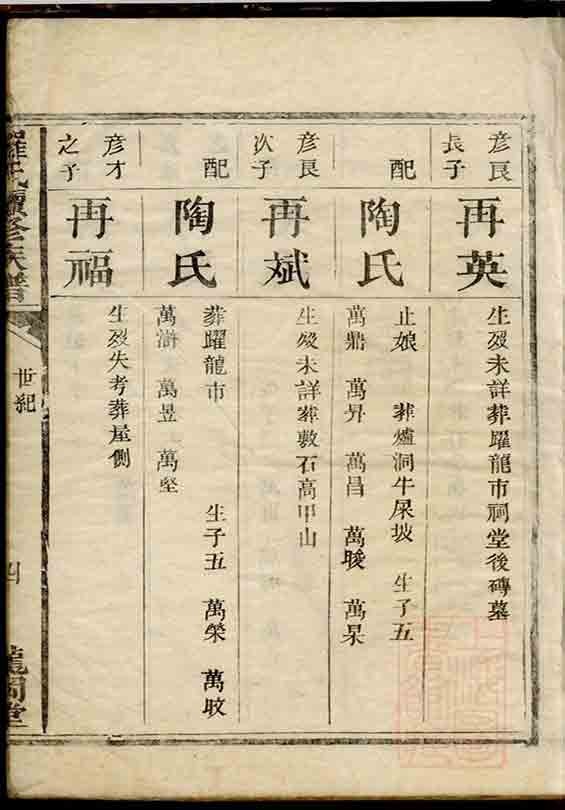 彥良
長子
再英
生歿未詳葬躍龍市祠堂後磚墓
配
陶氏
止娘 葬爐洞牛屎坡 生子五
萬鼎 萬昇 萬昌 萬晙 萬杲
彥良
次子
再斌
生歿未詳葬敷石高甲山
配
陶氏
葬躍龍市 生子五 萬榮 萬旼
萬滸 萬昱 萬堅
彥才
之子
再福
生歿失考葬屋側
羅氏續修族譜
世紀
四